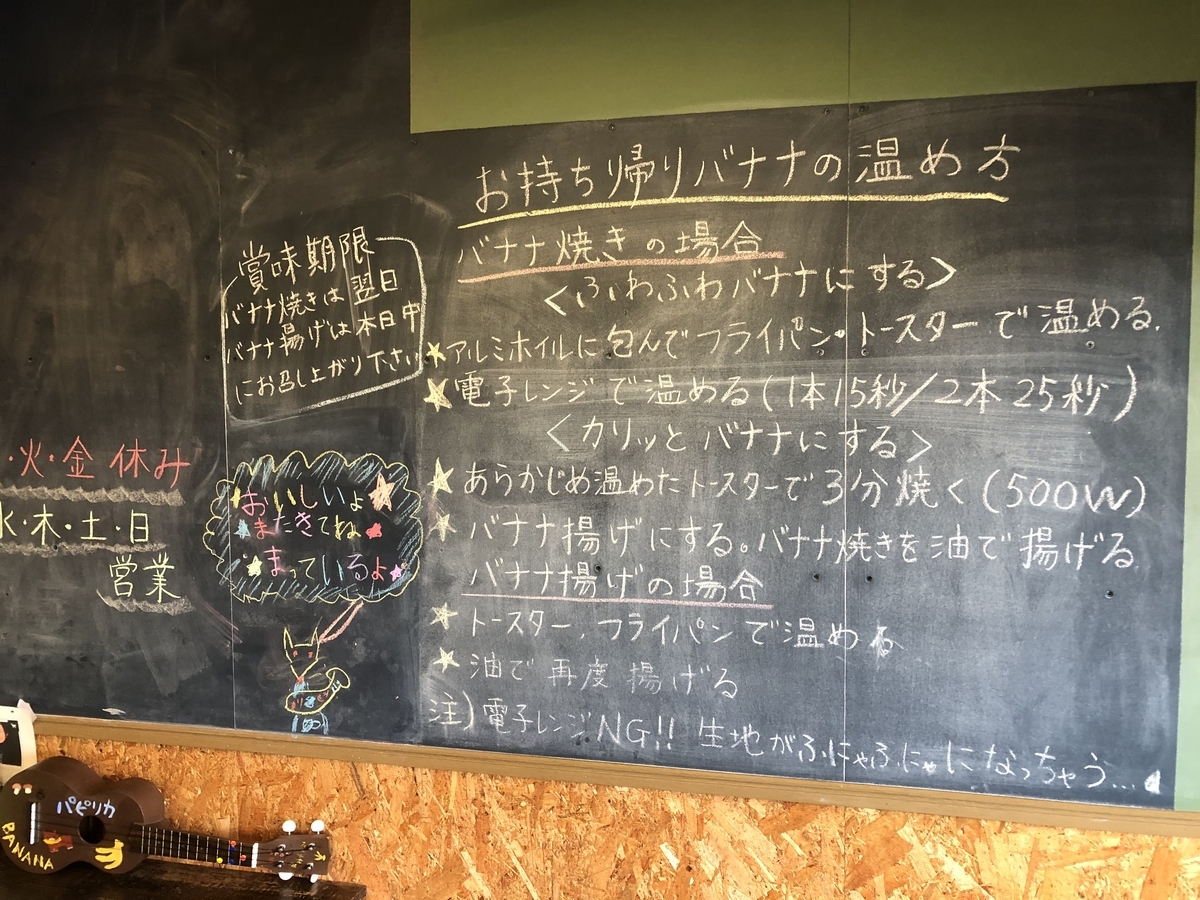 お持ち帰りバナナの温め方
バナナ焼きの場合
<ふわふわバナナにする>
★アルミホイルに包んでフライパン・トースターで温める.
★電子レンジで温める(1本15秒/2本25秒)
<カリッとバナナにする>
★あらかじめ温めたトースターで3分焼く(500W)
★バナナ揚げにする。バナナ焼きを油で揚げる
バナナ揚げの場合
★トースター,フライパンで温める
★油で再度揚げる
注)電子レンジNG!! 生地がふにゃふにゃになっちゃう...
賞味期限
バナナ焼きは翌日
バナナ揚げは本日中
にお召し上がり下さい
・火・金休み
水・木・土・日
営業
おいしいよ
またきてね
まっているよ
パピリカ
BANANA